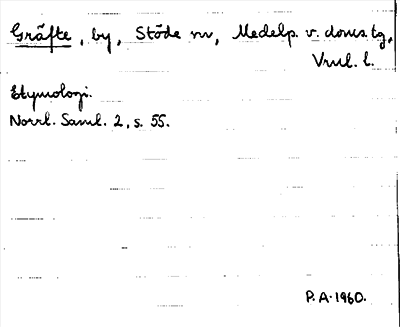 Gräfte, by, Stöde sn, Medelp. v. doms.tg,
Vrnl. l.
Etymologi.
Norrl. Saml. 2, s. 55.
P.A. 1960.